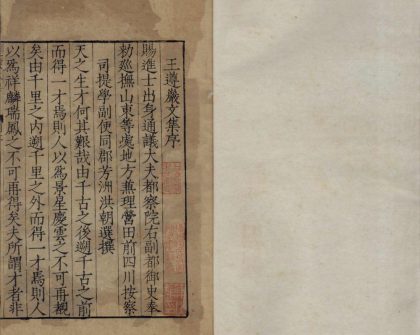 王遵巖文集序
賜進士出身通議大夫都察院右副都御史奉
勑巡撫山東等處地方兼理營田前四川按察
司提學副使同郡芳洲洪朝選撰
天之生才何其艱哉由千古之後遡千古之前
而得一才焉則人以爲景星慶雲之不可再覩
矣由千里之内遡千里之外而得一才焉則人
以爲祥麟瑞鳳之不可再得矣夫所謂才者非